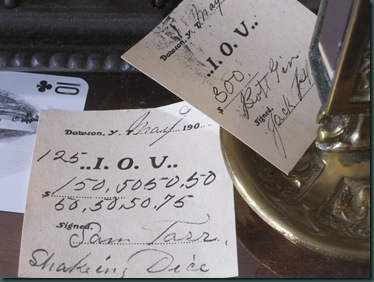 10
Dawson, Y. T. May
..I. O. U..
$ 300
Bott Gin
Signed,
Jack
Dawson, Y. T. May 190
125 ..I. O. U..
$ 150, 50 50, 50
50, 50, 50, 75
Signed,
Sam Tarr,
Shakeing Dice